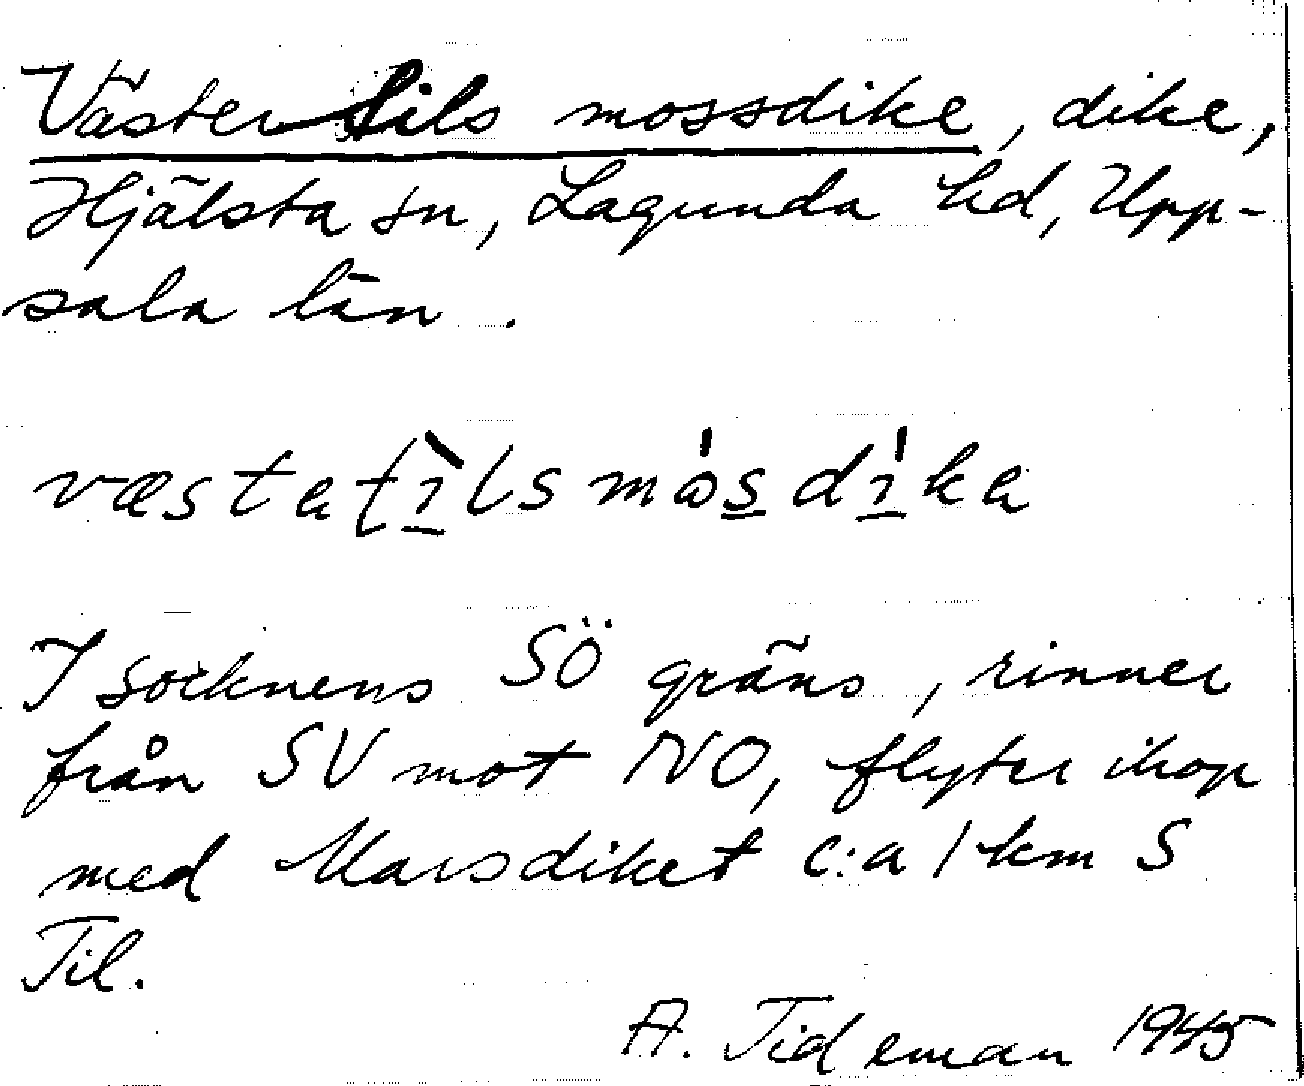 Västertils mossdike, dike,
Hjälsta sn, Lagunda hd, Upp-
sala län.
væstatìlsmòsdika
I socknens SÖ gräns, rinner
från SV mot NO, flyter ihop
med Marsdiket c:a 1 km S
Til.
A. Tideman 1945